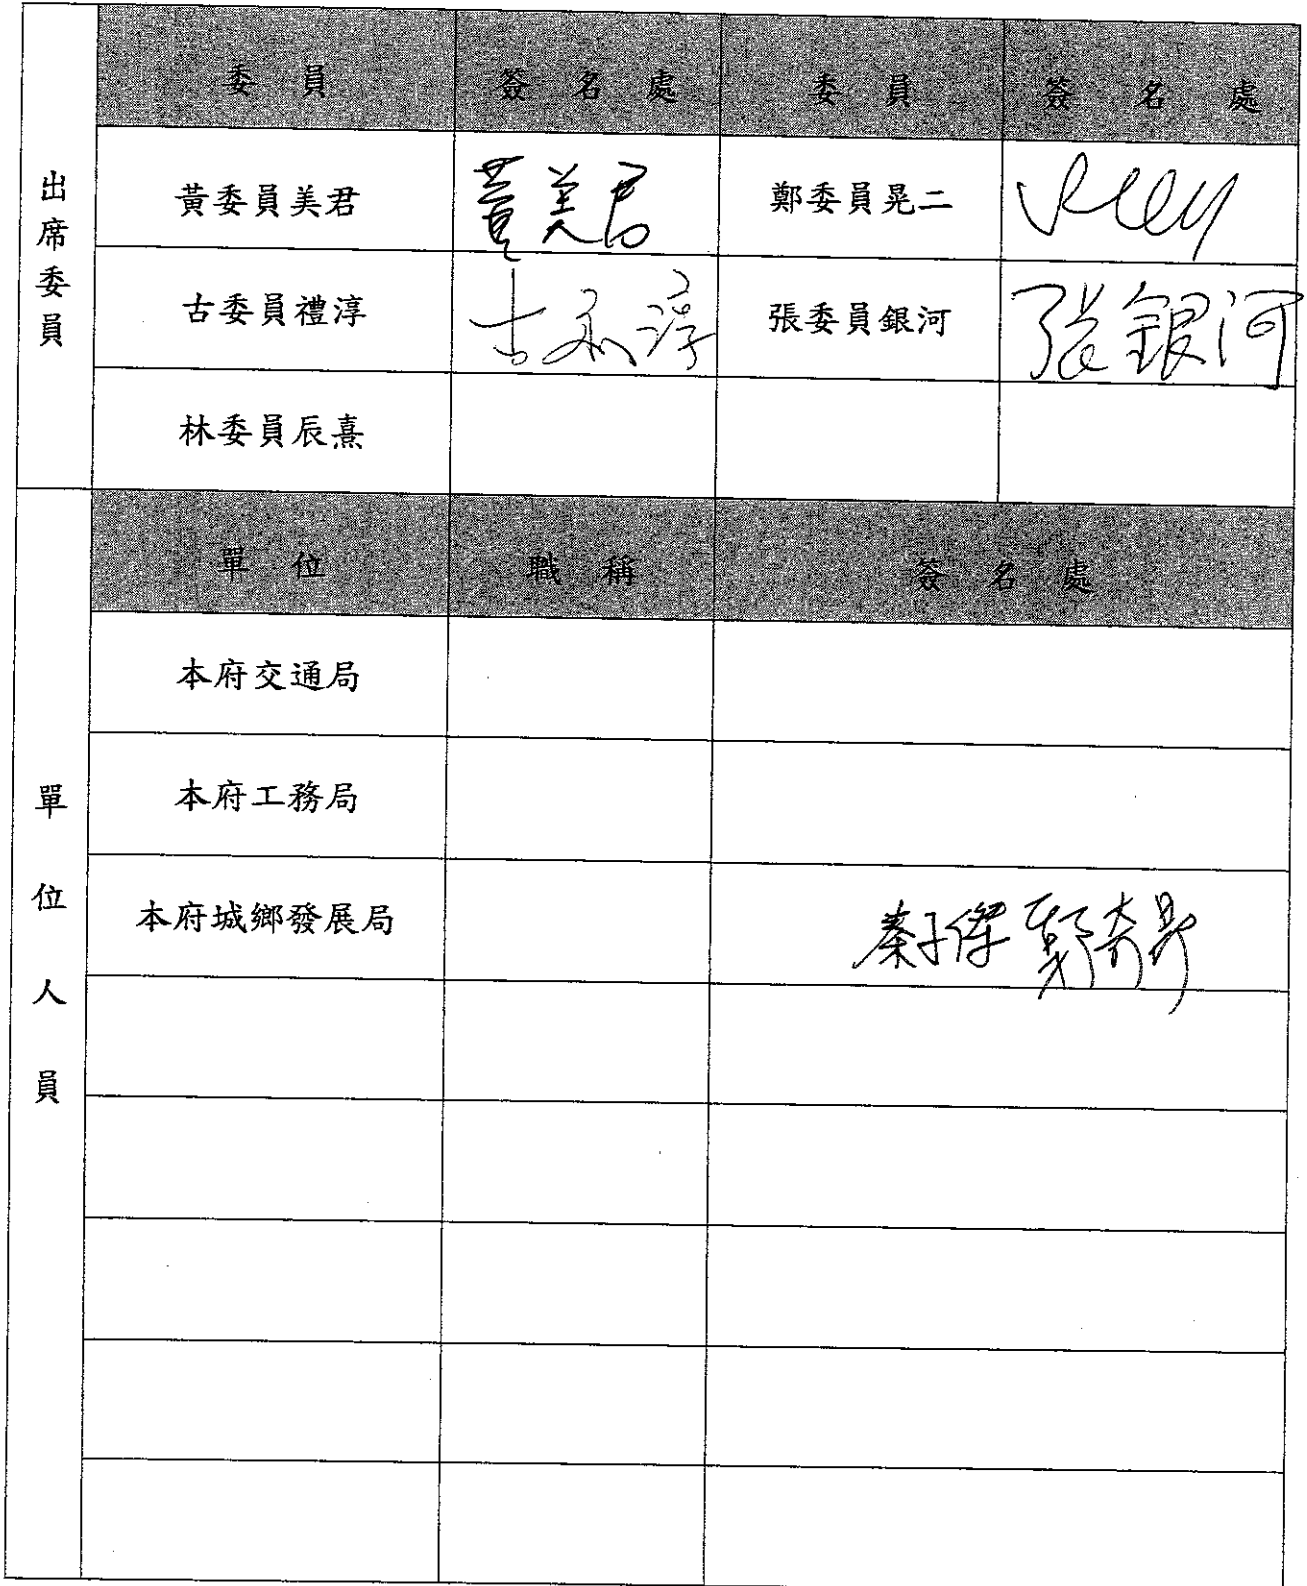 出席委員
委員 簽名處 委員 簽名處
黃委員美君 黃美君 鄭委員晃二
古委員禮淳 古禮淳 張委員銀河 張銀河
林委員辰熹
單位人員
單位 職稱 簽名處
本府交通局
本府工務局
本府城鄉發展局 秦子傑